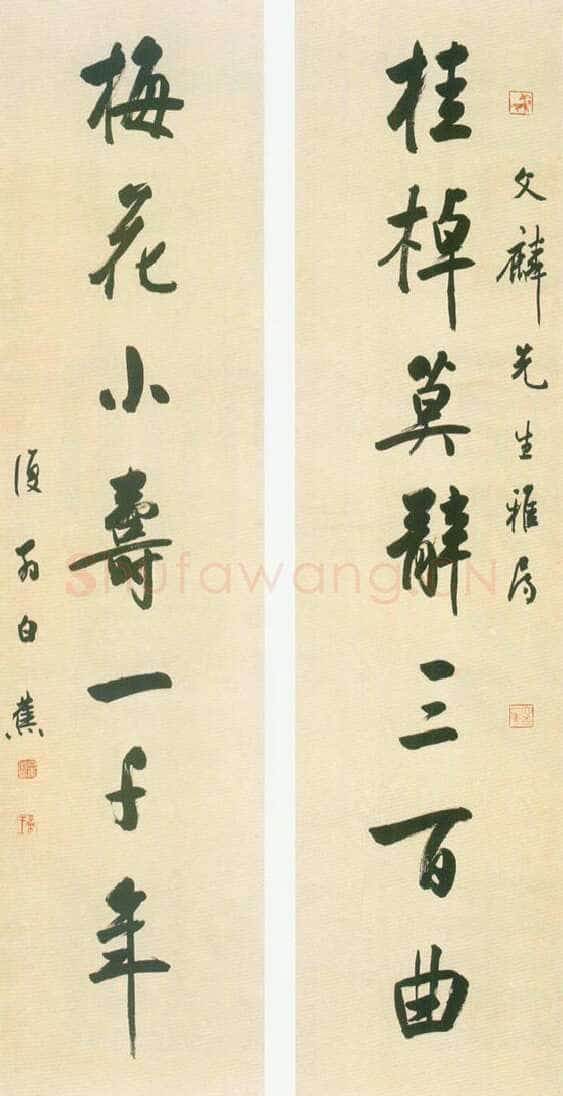 文麟先生雅属
桂棹莫辭三百曲
梅花小壽一千年
復翁白蕉
Shufawang.CN